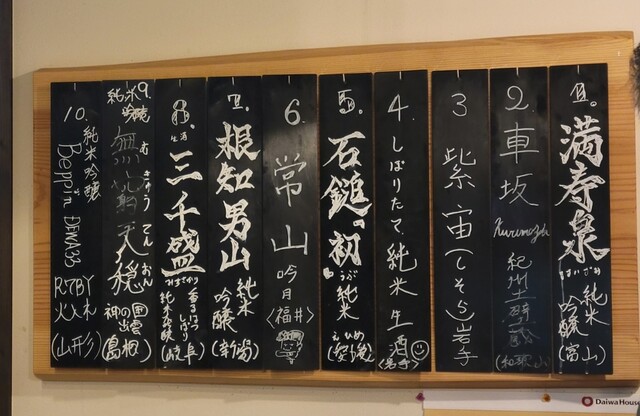 1.
満寿泉
純米吟醸
(富山)
2
車坂
(和歌山)
3
紫宙(しそら)岩手
4.
しぼりたて純米生酒
(岩手)
5.
石鎚。初
うぶ
純米
えひめ
6.
常山
吟月
〈福井〉
7.
根知男山
純米吟醸
(新潟)
8.
生酒
三千盛
みちさかり
しぼり
純米吟醸
(岐阜)
9
純米吟醸
無窮天穏
むきゅうてんおん
神の国出雲
(島根)
10.
純米吟醸
Beppin DEWA33
R5BY
火入れ
(山形)
DaiwaHouse